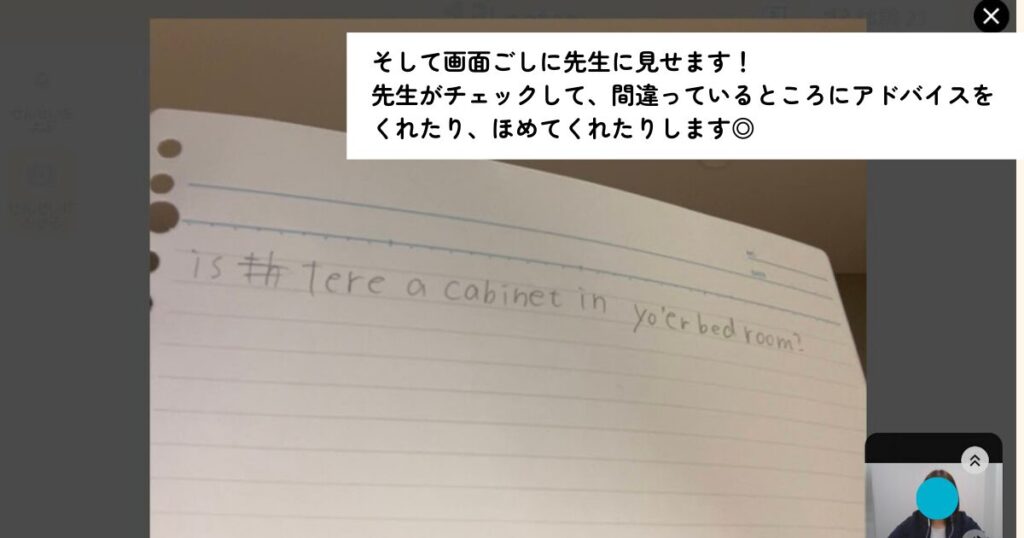 そして画面ごしに先生に見せます！
先生がチェックして、間違っているところにアドバイスを
くれたり、ほめてくれたりします◎
NO.
DATE
is th tere a cabinet in yo'er bed room?